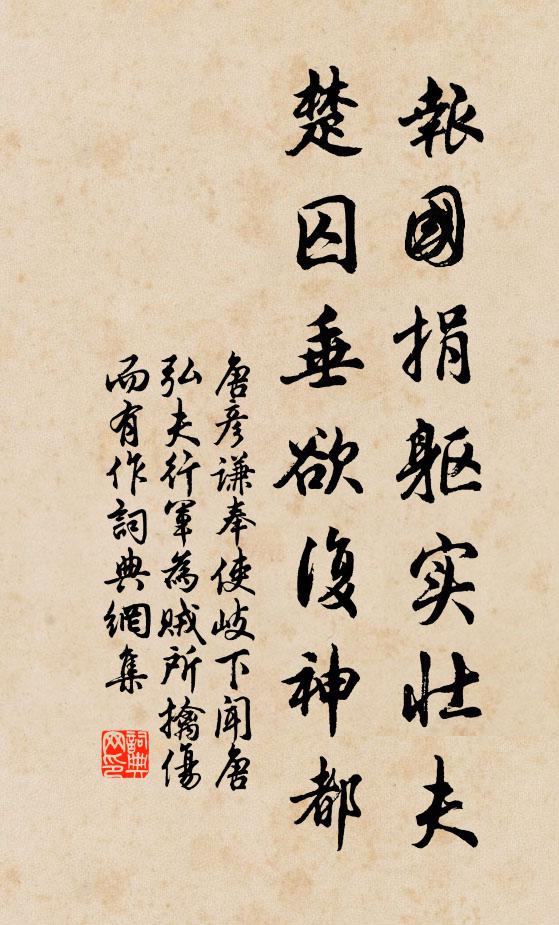 報國捐軀实壮夫
楚囚垂欲復神都
唐彦謙奉使岐下聞唐
弘夫行軍為賊所擒傷
而有作詞典網集
詞典网印